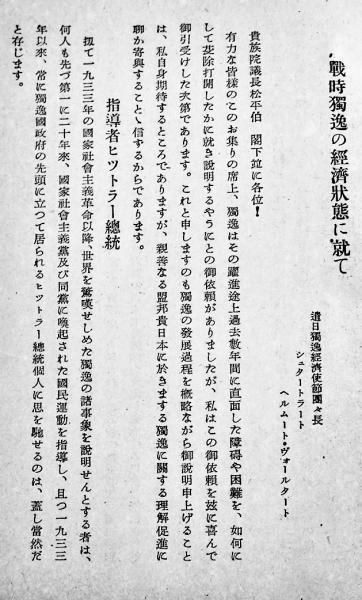 戰時獨逸の經濟狀態に就て
遣日獨逸經濟使節團々長
シュタートラート
ヘルムート・ヴォールタート
貴族院議長松平伯　閣下竝に各位！
有力な皆樣のこのお集りの席上、獨逸はその躍進途上過去數年間に直面した障碍や困難を、如何に
して芟除打開したかに就き說明するやうにとの御依賴がありましたが、私はこの御依賴を玆に喜んで
御引受けした次第であります。これと申しますのも獨逸の發展過程を槪略ながら御說明申上げること
は、私自身期待するところでありますが、親善なる盟邦貴日本に於きまする獨逸に關する理解促進に
聊か寄與すること〻信するからであります。
指導者ヒットラー總統
扨て一九三三年の國家社會主義革命以降、世界を驚嘆せしめた獨逸の諸事象を說明せんとする者は、
何人も先づ第一に二十年來、國家社會主義黨及び同黨に喚起された國民運動を指導し、且つ一九三三
年以來、常に獨逸國政府の先頭に立つて居られるヒットラー總統個人に思を馳せるのは、蓋し當然だ
と存じます。